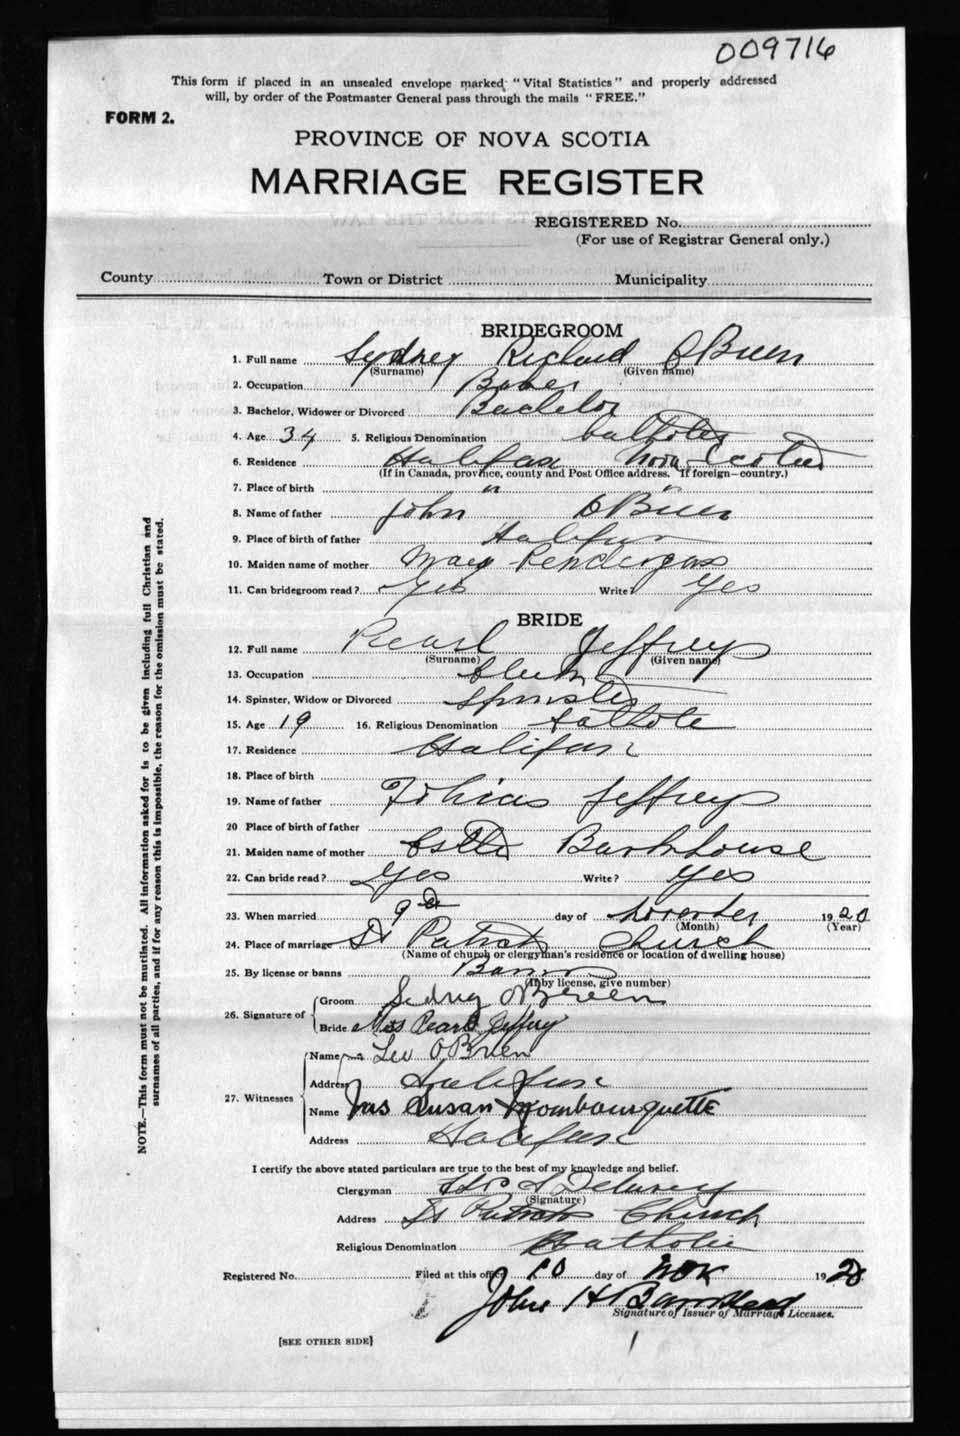 009716
This form if placed in an unsealed envelope marked "Vital Statistics" and properly addressed
will, by order of the Postmaster General pass through the mails "FREE."
FORM 2.
PROVINCE OF NOVA SCOTIA
MARRIAGE REGISTER
REGISTERED No.
(For use of Registrar General only.)
County Town or District Municipality
BRIDEGROOM
1. Full name Sydney Richard OBrien
(Surname) (Given name)
2. Occupation
3. Bachelor, Widower or Divorced Bachelor
4. Age 34 5. Religious Denomination Catholic
6. Residence Halifax Nova Scotia
(If in Canada, province, county and Post Office address. If foreign—country.)
7. Place of birth " "
8. Name of father John OBrien
9. Place of birth of father Halifax
10. Maiden name of mother Mary Pendergas
11. Can bridegroom read? Yes Write? Yes
BRIDE
12. Full name Pearl Jeffreys
(Surname) (Given name)
13. Occupation Clerk
14. Spinster, Widow or Divorced Spinster
15. Age 19 16. Religious Denomination Catholic
17. Residence Halifax
18. Place of birth
19. Name of father Tobias Jeffreys
20 Place of birth of father
21. Maiden name of mother Barkhouse
22. Can bride read? Yes Write? Yes
23. When married 9 day of November 1920
(Month) (Year)
24. Place of marriage St Patricks Church
(Name of church or clergyman's residence or location of dwelling house)
25. By license or banns Banns
(If by license, give number)
26. Signature of Groom Sidney OBrien
Bride Miss Pearl Jeffery
27. Witnesses Name Leo OBrien
Address Halifax
Name Mrs Susan Trombourquette
Address Halifax
I certify the above stated particulars are true to the best of my knowledge and belief.
Clergyman
(Signature)
Address St Patricks Church
Religious Denomination Catholic
Registered No. Filed at this office 10 day of Nov 1920
John H Barnstead
Signature of Issuer of Marriage Licenses.
[SEE OTHER SIDE]
NOTE.—This form must not be mutilated. All information asked for is to be given including full Christian and
surnames of all parties, and if for any reason this is impossible, the reason for the omission must be stated.